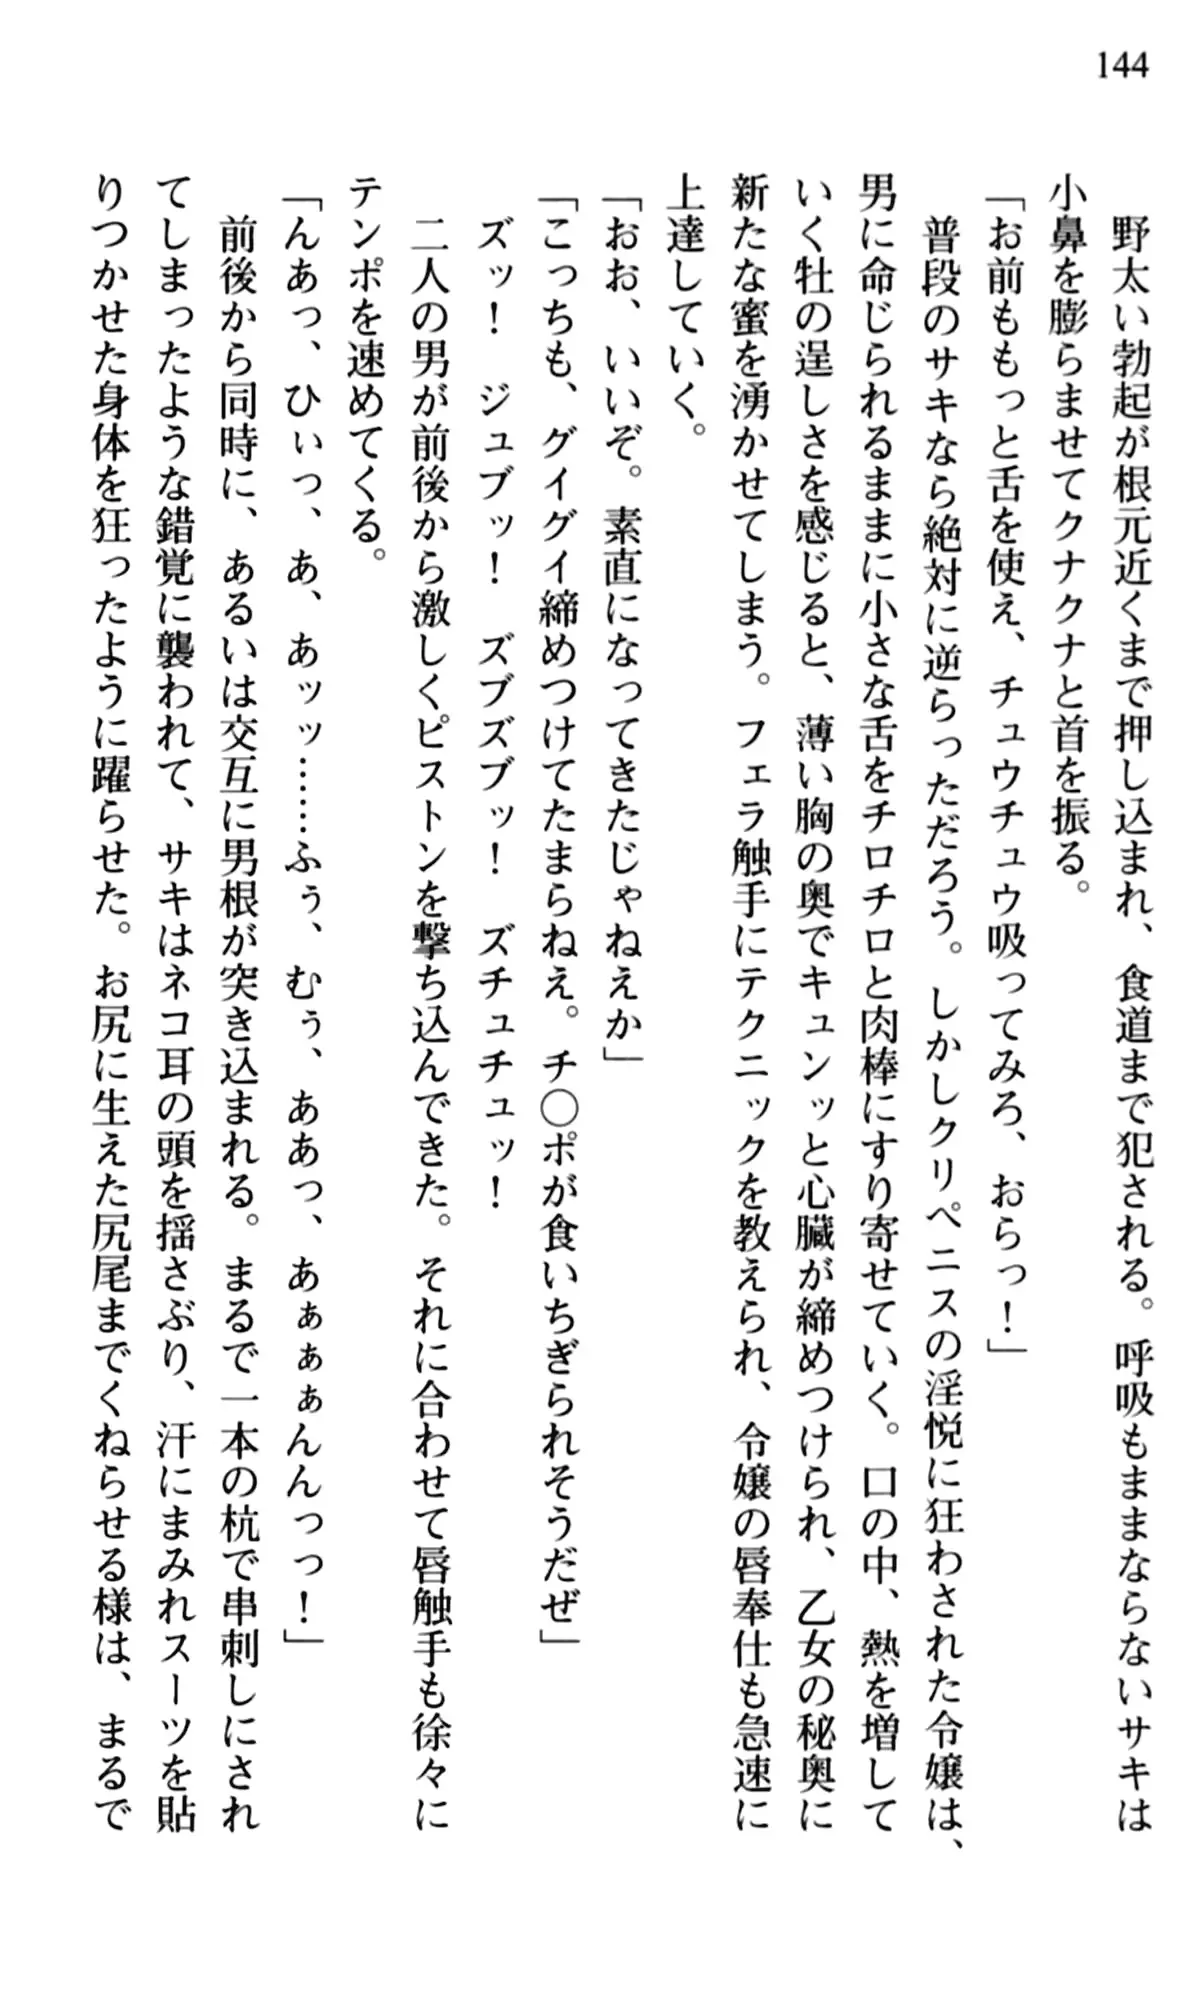 144
野太い勃起が根元近くまで押し込まれ、食道まで犯される。呼吸もままならないサキは
小鼻を膨らませてクナクナと首を振る。
「お前ももっと舌を使え、チュウチュウ吸ってみろ、おらっ！」
普段のサキなら絶対に逆らっただろう。しかしクリペニスの淫悦に狂わされた令嬢は、
男に命じられるままに小さな舌をチロチロと肉棒にすり寄せていく。口の中、熱を増して
いく牡の逞しさを感じると、薄い胸の奥でキュンッと心臓が締めつけられ、乙女の秘奥に
新たな蜜を湧かせてしまう。フェラ触手にテクニックを教えられ、令嬢の唇奉仕も急速に
上達していく。
「おお、いいぞ。素直になってきたじゃねえか」
「こっちも、グイグイ締めつけてたまらねえ。チ◯ポが食いちぎられそうだぜ」
ズッ！　ジュブッ！　ズブズブッ！　ズチュチュッ！
二人の男が前後から激しくピストンを撃ち込んできた。それに合わせて唇触手も徐々に
テンポを速めてくる。
「んあっ、ひぃっ、あ、あッッ……ふぅ、むぅ、ああっ、あぁぁぁんんっっ！」
前後から同時に、あるいは交互に男根が突き込まれる。まるで一本の杭で串刺しにされ
てしまったような錯覚に襲われて、サキはネコ耳の頭を揺さぶり、汗にまみれスーツを貼
りつかせた身体を狂ったように躍らせた。お尻に生えた尻尾までくねらせる様は、まるで